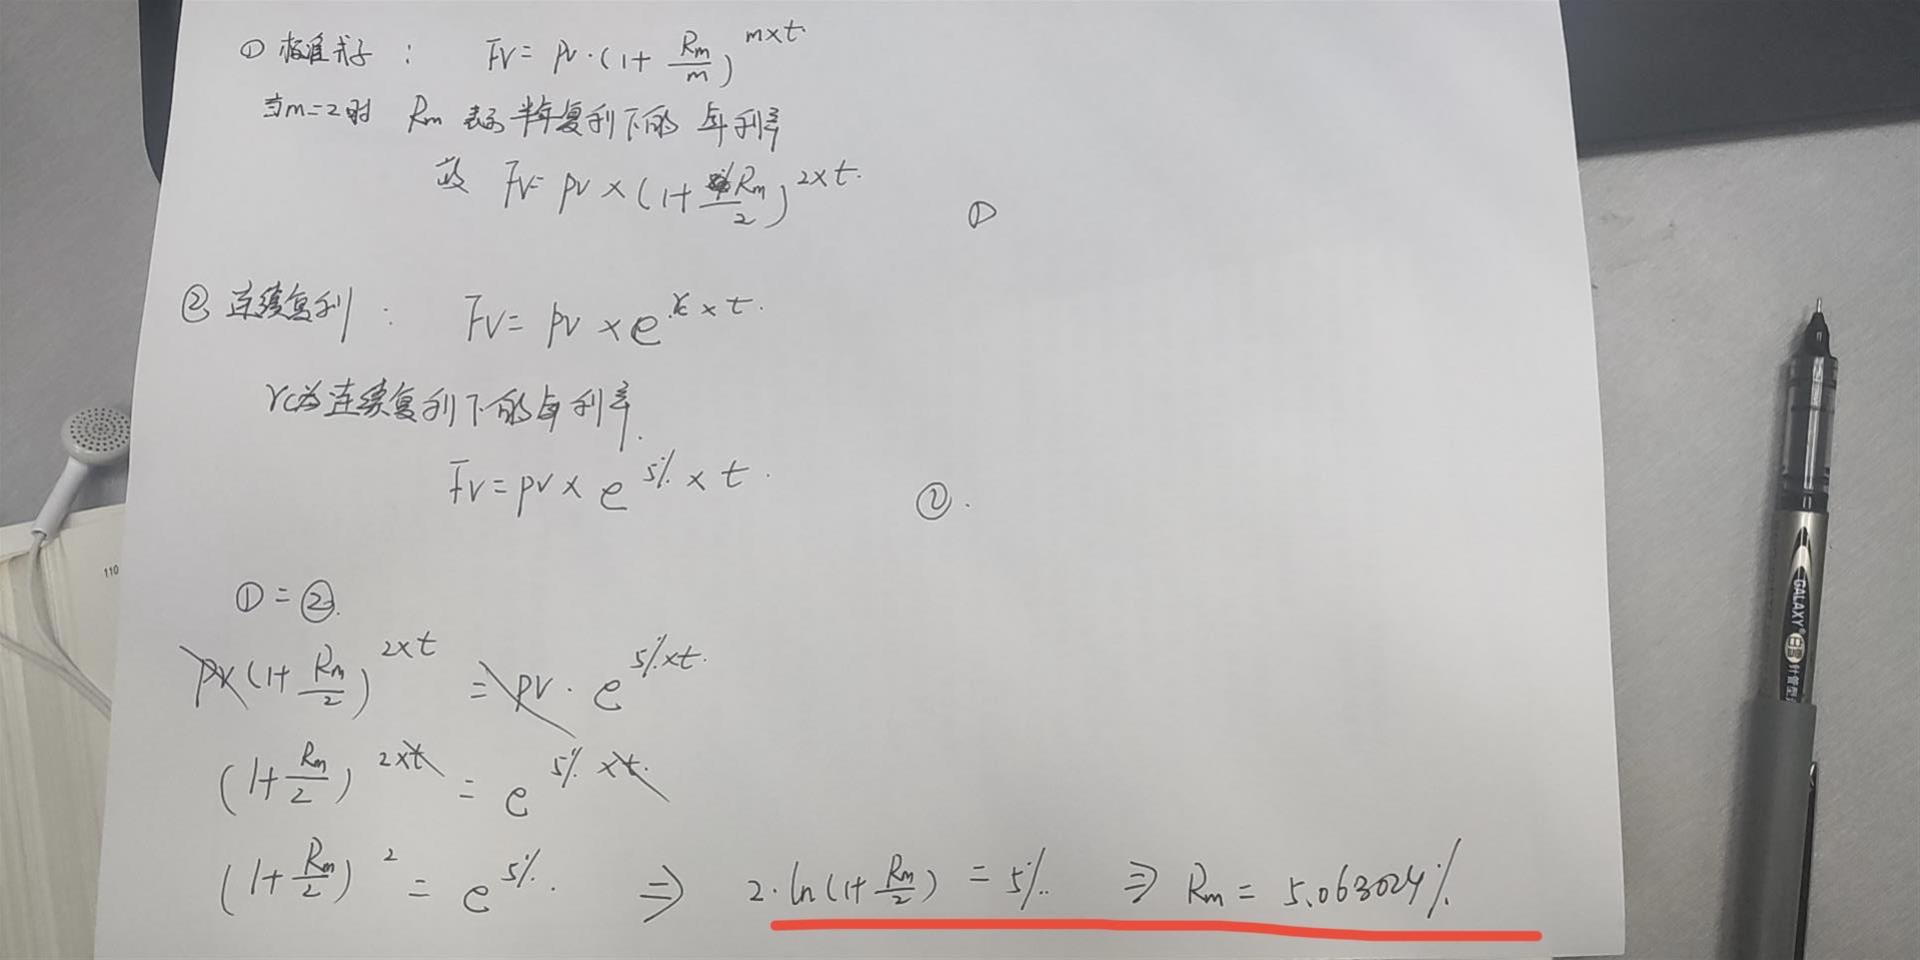 ① 标准式子： FV = PV·(1+ Rm/m)^m×t
当m=2时 Rm 表示半年复利下的年利率
故 FV = PV × (1+ Rm/2)^2×t. ①
② 连续复利： FV = PV × e^rc × t.
rc为连续复利下的年利率.
FV = PV × e^5% × t. ②.
① = ②.
PV(1+ Rm/2)^2×t = PV· e^5%×t.
(1+ Rm/2)^2×t = e^5% ×t.
(1+ Rm/2)^2 = e^5%. ⇒ 2·ln(1+ Rm/2) = 5%. ⇒ Rm = 5.063024%
110
GALAXY